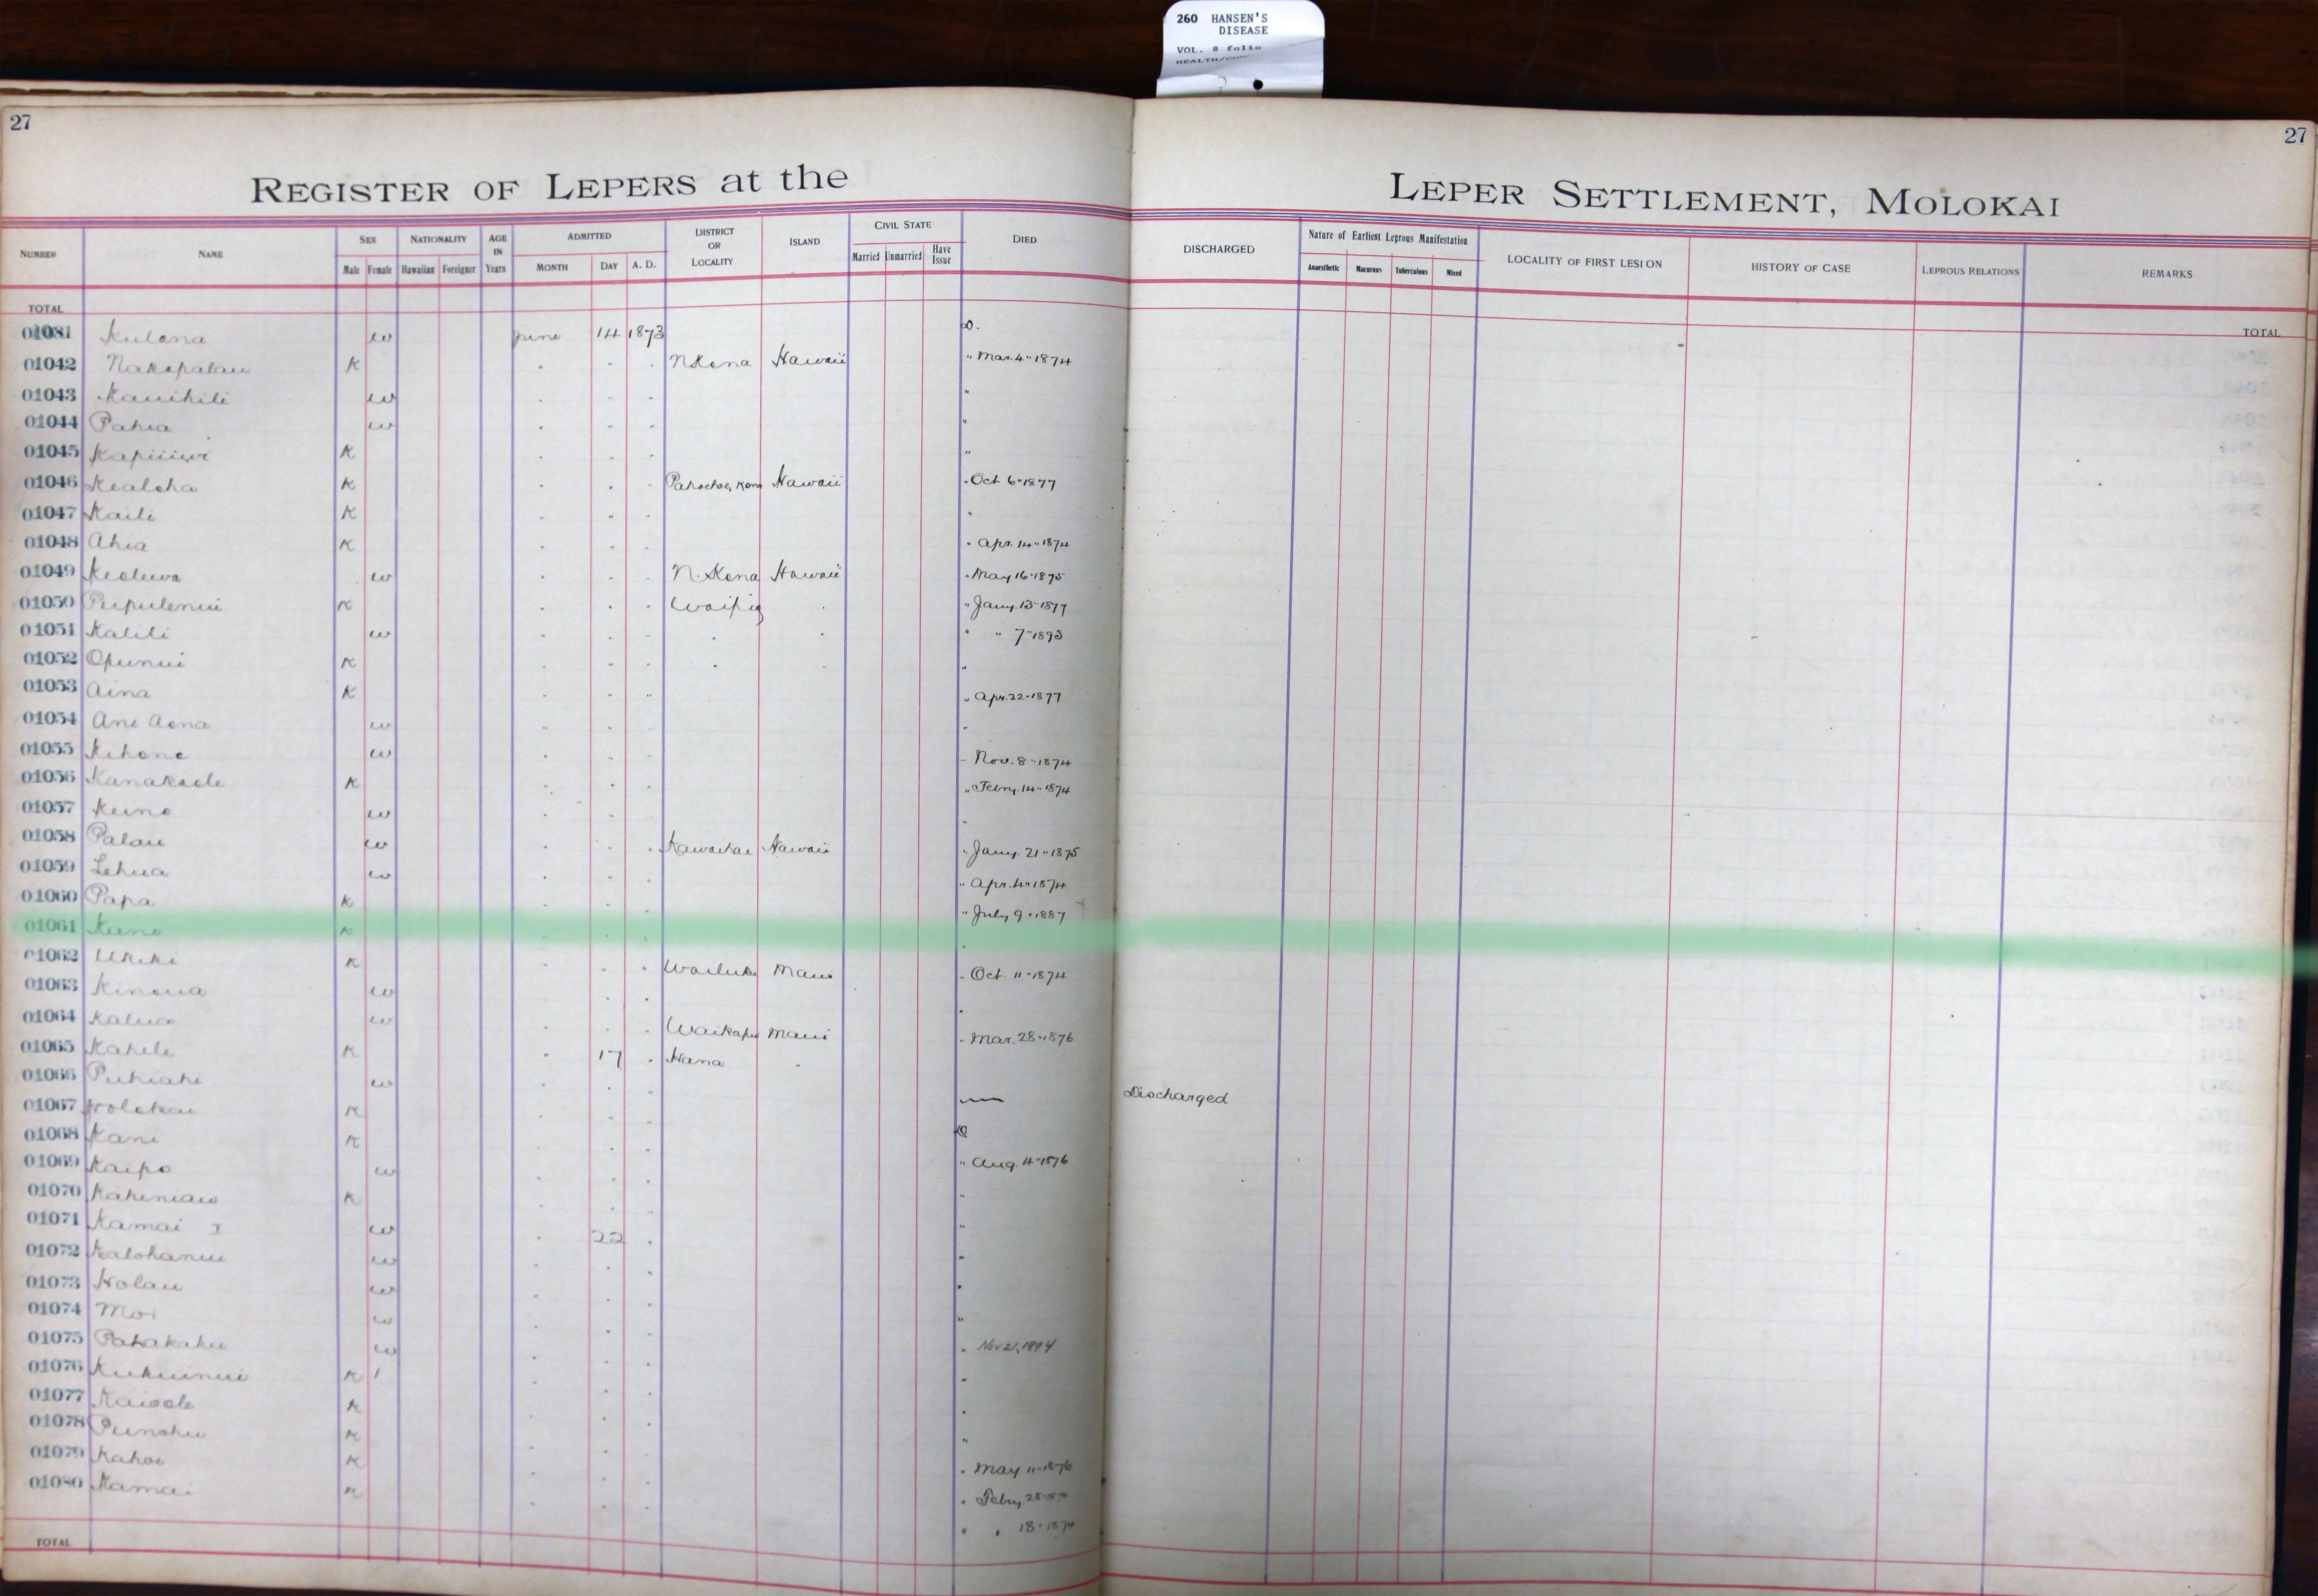 260 HANSEN'S
DISEASE
VOL. 8 folio
27
27
REGISTER OF LEPERS at the LEPER SETTLEMENT, MOLOKAI
NUMBER NAME SEX NATIONALITY AGE IN Years ADMITTED DISTRICT OR LOCALITY ISLAND CIVIL STATE DIED DISCHARGED Nature of Earliest Leprous Manifestation LOCALITY OF FIRST LESION HISTORY OF CASE LEPROUS RELATIONS REMARKS
Male Female Hawaiian Foreigner MONTH DAY A. D. Married Unmarried Have Issue Anaesthetic Macurous Tuberculous Mixed
TOTAL TOTAL
Kulana w June 14 1873 D.
01042 Nakapalau K " " " N Kona Hawaii " Mar. 4" 1874
01043 Kauihili w " " " "
01044 Pahia w " " " "
01045 K " " " "
01046 Kealoha K " " " Kona Hawaii " Oct 6" 1877
01047 Kaili K " " " "
01048 Ahia K " " " " Apr. 14" 1874
01049 w " " " N. Kona Hawaii " May 16" 1875
01050 Pupulenui K " " " Waipio " " Jany. 13" 1877
01051 Kalili w " " " " " " " 7" 1893
01052 Opunui K " " " " " "
01053 Aina K " " " " Apr. 22" 1877
01054 Ane Aona w " " " "
01055 Kehone w " " " " Nov. 8" 1874
01056 Kanakaole K " " " " Febry. 14" 1874
01057 Keino w " " " "
01058 Palau w " " " Kawaihae Hawaii " Jany. 21" 1875
01059 Lehua w " " " " Apr. 4" 1874
01060 Papa K " " " " July 9" 1887
01061 K " " " "
01062 Ukeke K " " " Wailuku Maui " Oct. 11" 1874
01063 Kinoua w " " " "
01064 Kalua w " " " Waikapu Maui " Mar. 28" 1876
01065 Kahele K " 17 " Hana "
01066 Puhiahi w " " " — Discharged
01067 Holokai K " " " D
01068 Kani K " " " " Aug. 4" 1876
01069 Kaipo w " " " "
01070 Kaheniau K " " " "
01071 Kamai I w " 22 " "
01072 Kalohanui w " " " "
01073 Holau w " " " "
01074 Moi w " " " " Nov 21, 1894
01075 Pahakaku w " " " "
01076 Kukuinui K " " " "
01077 Kaiole K " " " "
01078 Punohu K " " " " May 11" 1876
01079 Kahoe K " " " " Febry 28"
01080 Kamai K " " " " " 18" 1874
TOTAL